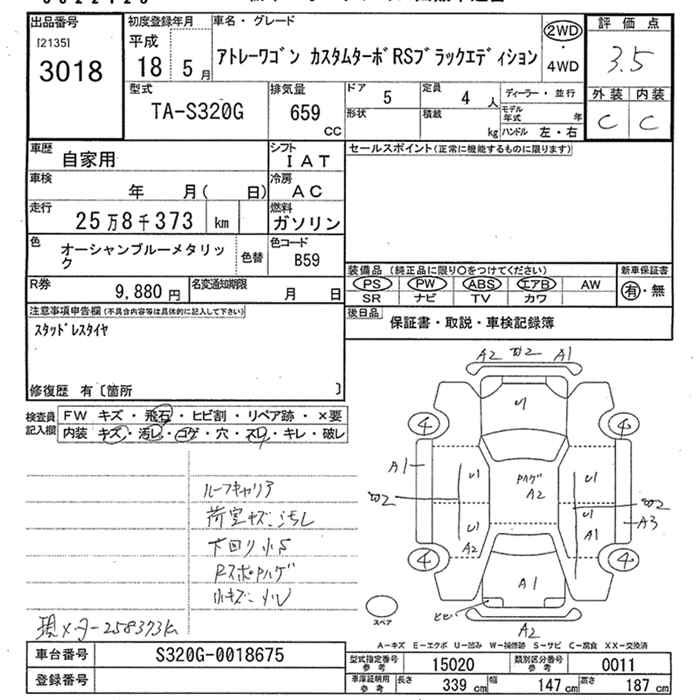 出品番号
[2135]
3018
初度登録年月
平成
18 5月
車名・グレード
アトレーワゴン カスタムターボRSブラックエディション
2WD
・
4WD
評価点
3.5
外装 内装
C C
型式
TA-S320G
排気量
659
CC
ドア
5
定員
4 人
形状
積載
kg
ディーラー・並行
モデル年式 年
ハンドル 左・右
車歴
自家用
シフト
IAT
車検
年 月( 日)
冷房
AC
走行
25万8千373 km
燃料
ガソリン
色
オーシャンブルーメタリック
色替
色コード
B59
R券
9,880円
名変通知期限
月 日
セールスポイント(正常に機能するものに限ります)
装備品 (純正品に限り○をつけてください)
PS PW ABS エアB AW
SR ナビ TV カワ
新車保証書
有・無
後日品
保証書・取説・車検記録簿
注意事項申告欄(不具合内容等は具体的に記入して下さい)
スタッドレスタイヤ
修復歴 有〔箇所 〕
検査員記入欄
FW キズ・飛石・ヒビ割・リペア跡・×要
内装 キズ・汚レ・コゲ・穴・スレ・キレ・破レ
ルーフキャリア
荷室キズ・汚レ
下回り小S
Rスポハゲ
小キズ・凹
現メーター258373K
A2 A1
U1
4 4
A1
U1
ハゲ
A2
U1
U1
A2
U1
A1
A3
4 4
A1
ヒビ
A2
スペア
A-キズ E-エクボ U-凹み W-補修跡 S-サビ C-腐食 XX-交換済
車台番号
S320G-0018675
登録番号
型式指定番号
参考
15020
類別区分番号
参考
0011
車庫証明用
参考
長さ 339 cm 幅 147 cm 高さ 187 cm